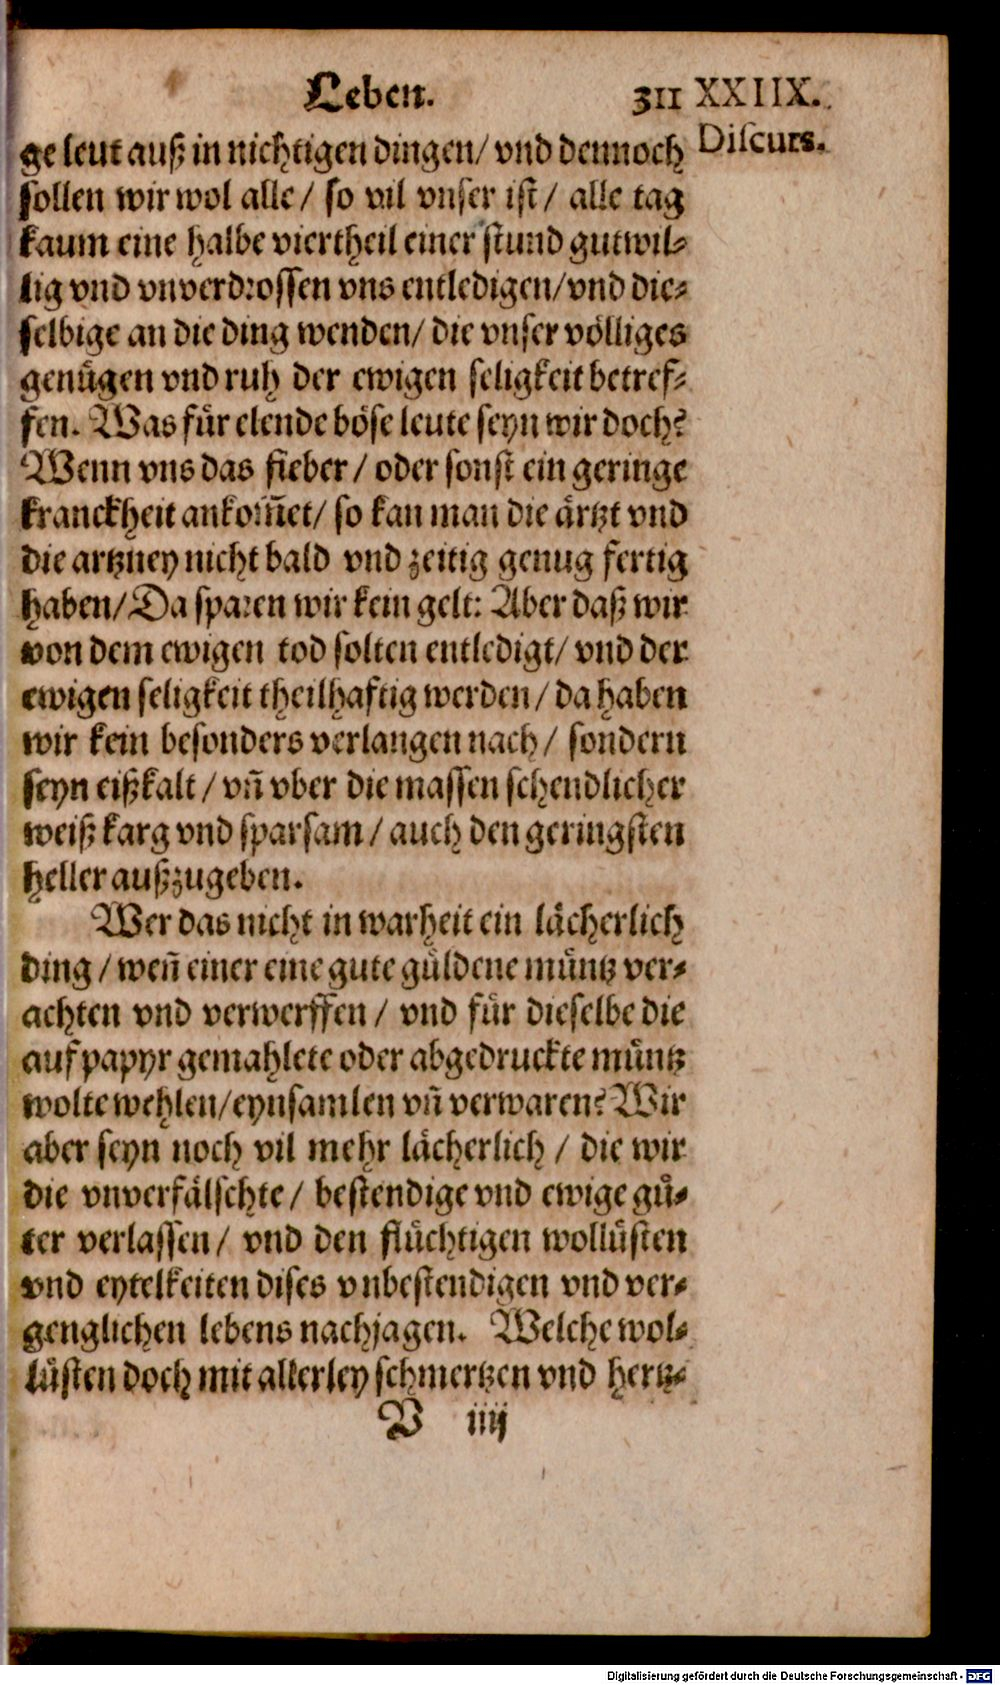 Leben. 311 XXIIX.
Discurs.
ge leut auß in nichtigen dingen/ vnd dennoch
sollen wir wol alle/ so vil vnser ist/ alle tag
kaum eine halbe viertheil einer stund gutwil⸗
lig vnd vnverdrossen vns entledigen/vnd die⸗
selbige an die ding wenden/ die vnser völliges
genügen vnd ruh der ewigen seligkeit betref⸗
fen. Was für elende böse leute seyn wir doch?
Wenn vns das fieber/ oder sonst ein geringe
kranckheit ankom̃et/ so kan man die ärtzt vnd
die artzney nicht bald vnd zeitig genug fertig
haben/Da sparen wir kein gelt: Aber daß wir
von dem ewigen tod solten entledigt/ vnd der
ewigen seligkeit theilhaftig werden/ da haben
wir kein besonders verlangen nach/ sondern
seyn eißkalt/ vñ vber die massen schendlicher
weiß karg vnd sparsam/ auch den geringsten
heller außzugeben.
Wer das nicht in warheit ein lächerlich
ding/ weñ einer eine gute güldene müntz ver⸗
achten vnd verwerffen/ vnd für dieselbe die
auf papyr gemahlete oder abgedruckte müntz
wolte wehlen/eynsamlen vñ verwaren? Wir
aber seyn noch vil mehr lächerlich/ die wir
die vnverfälschte/ bestendige vnd ewige gü⸗
ter verlassen/ vnd den flüchtigen wollüsten
vnd eytelkeiten dises vnbestendigen vnd ver⸗
genglichen lebens nachjagen. Welche wol⸗
lüsten doch mit allerley schmertzen vnd hertz⸗
V iiij
Digitalisierung gefördert durch die Deutsche Forschungsgemeinschaft - DFG